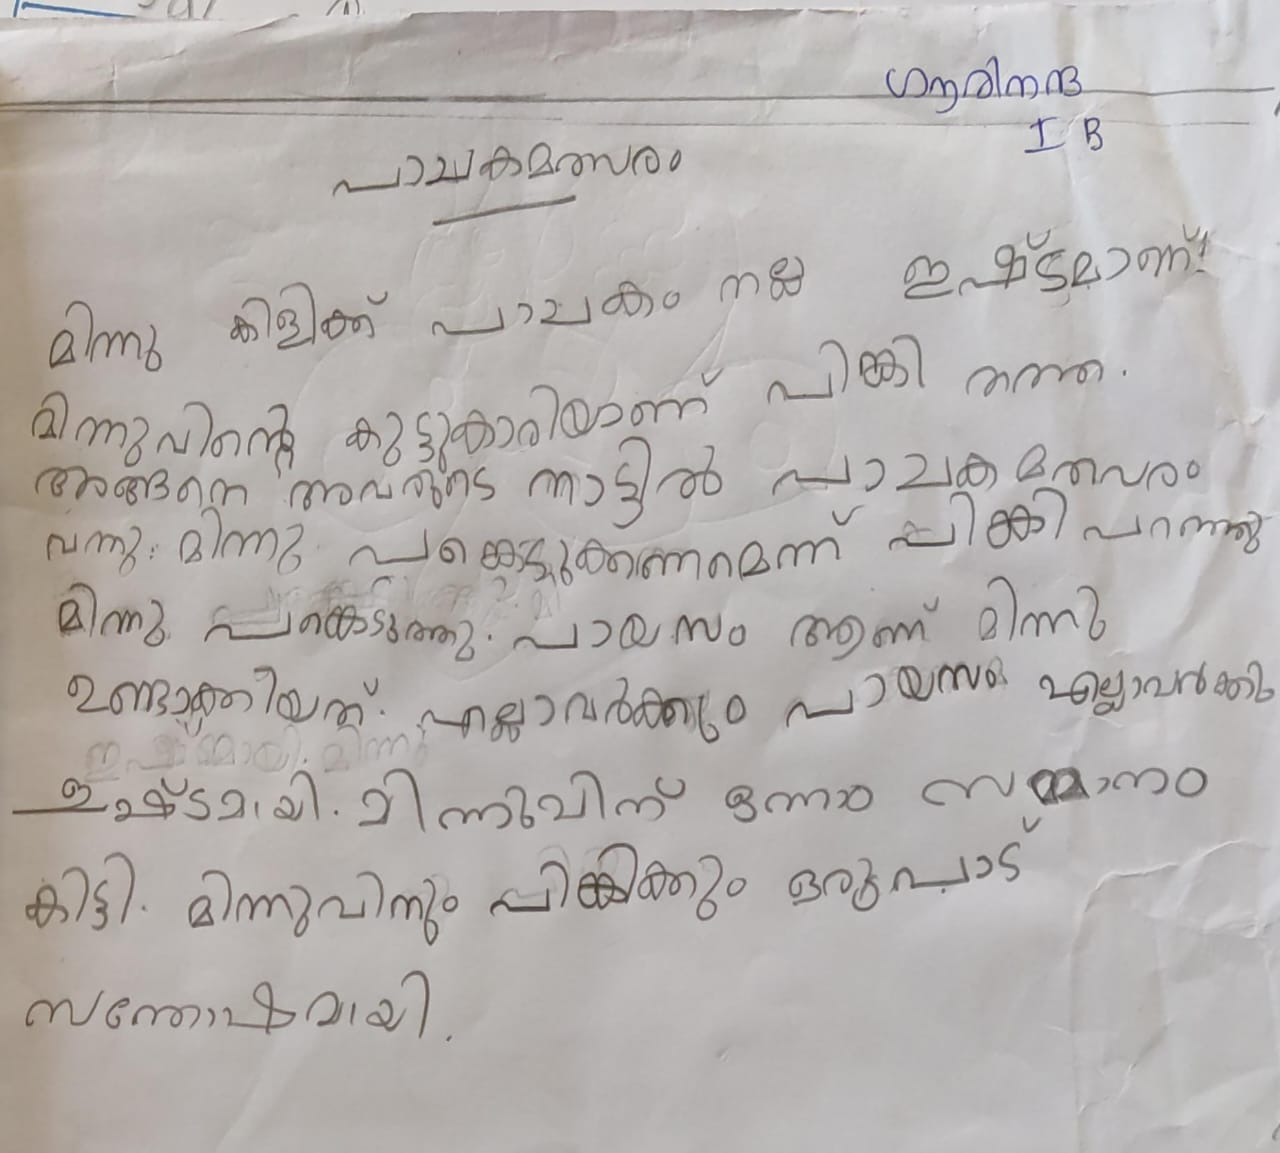 ഗൗരിനന്ദ
I B
പാചകമത്സരം
മിന്നു കിളിക്ക് പാചകം നല്ല ഇഷ്ടമാണ്.
മിന്നുവിന്റെ കുട്ടുകാരിയാണ് പിങ്കി തത്ത.
അങ്ങനെ അവരുടെ നാട്ടിൽ പാചക മത്സരം
വന്നു. മിന്നു പങ്കെടുക്കണമെന്ന് പിങ്കി പറഞ്ഞു
മിന്നു പങ്കെടുത്തു. പായസം ആണ് മിന്നു
ഉണ്ടാക്കിയത്. എല്ലാവർക്കും പായസം എല്ലാവർക്കും
ഇഷ്ടമായി. മിന്നുവിന് ഒന്നാം സമ്മാനം
കിട്ടി. മിന്നുവിനും പിങ്കിക്കും ഒരുപാട്
സന്തോഷമായി.